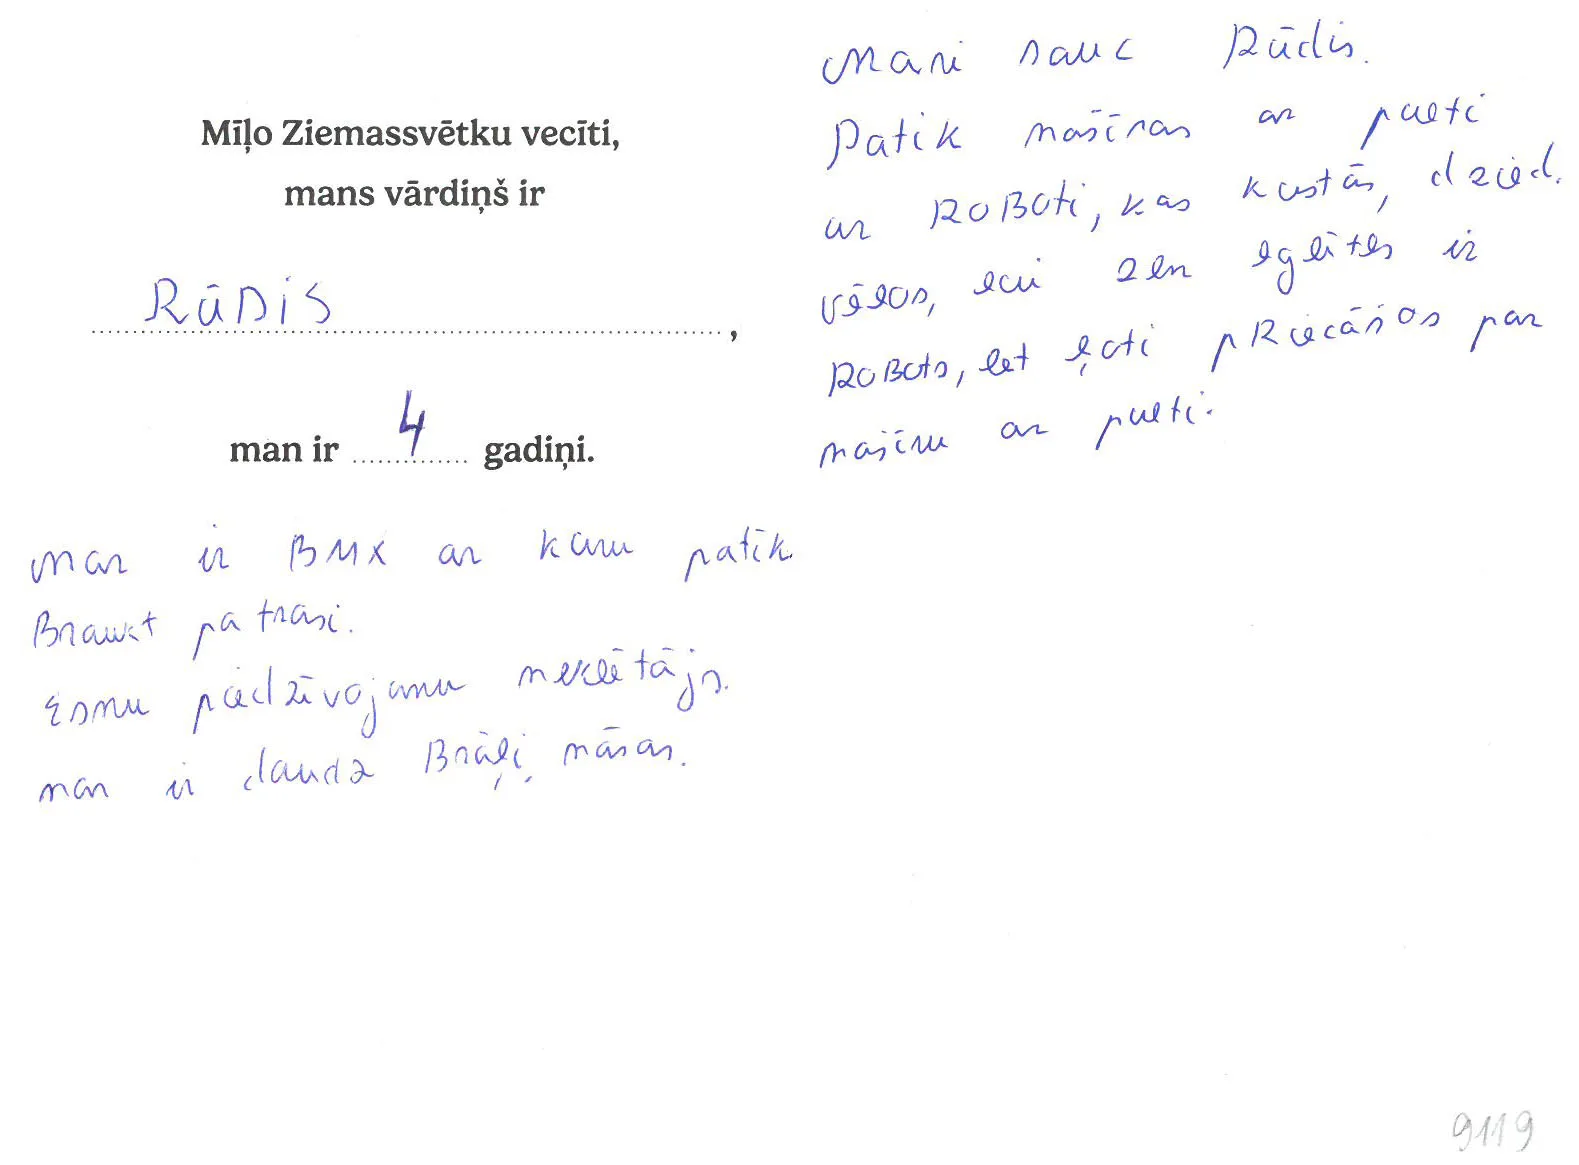 Mīļo Ziemassvētku vecīti,
mans vārdiņš ir
RūDis,
man ir 4 gadiņi.
Man ir BMX ar kuru patīk
Braukt pa trasi.
Esmu piedzīvojumu meklētājs.
man ir daudz Brāļi, māsas.
Mani sauc Rūdis.
Patīk mašīnas ar pulti
un RoBoti, kas kustās, dzied.
Vēlos, lai zem eglītes ir
RoBots, bet ļoti pRiecāšos par
mašīnu ar pulti.
9119